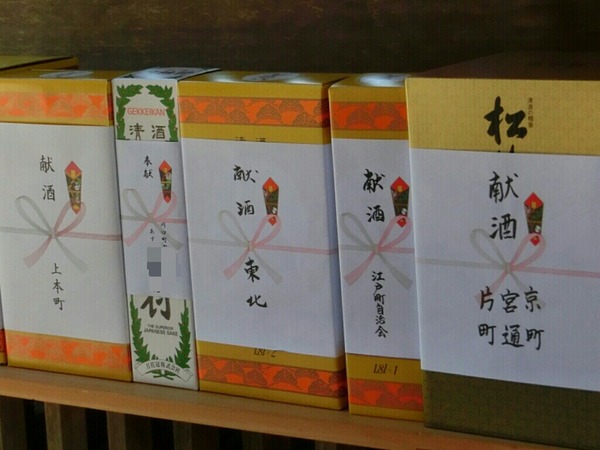 献酒
上本町
GEKKEIKAN
清酒
奉献
THE SUPERIOR
JAPANESE SAKE
月桂冠株式会社
清酒
献酒
東北
1.8l×2
献酒
江戸町自治会
1.8l×1
松
献酒
京町
宮通
片町